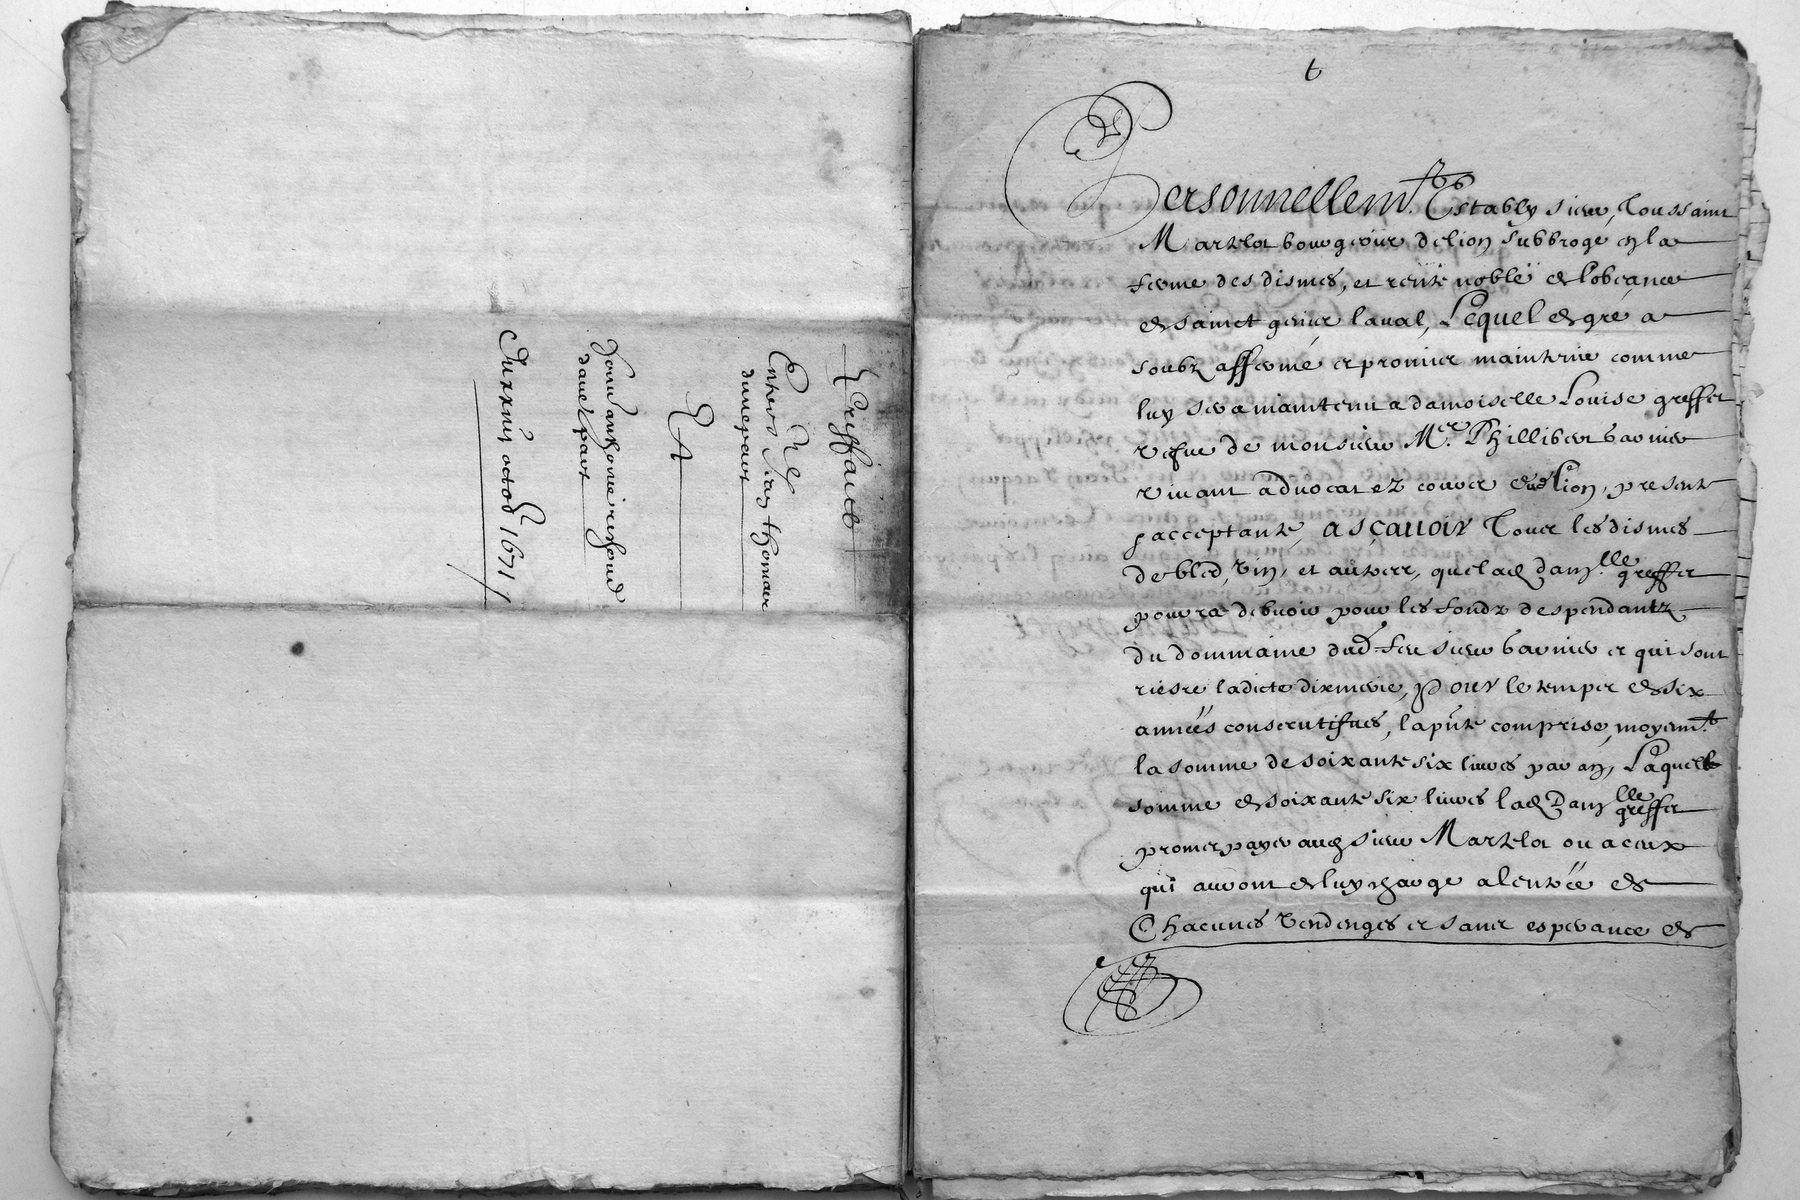 Du xxiij octob 1671
Jean anthoine reynaud
dauẽ part
Et
Entre Sr Jean thomas
dunepart
Personnellemt. Estably sieur Toussaint
Martelot bourgeois de lion subbrogé en la
ferme des dismes, et rente noble de lobeance
de sainct genier laual, Lequel de gré a
soubz affermé et promier maintenir comme
luy sera maintenu a damoiselle Louise greffet
vefue de monsieur Mer. Philliber barnier
viuant aduocat ez courtz dud Lion, presente
et acceptante ascauoir Toutes les dismes
de bled, vin, et autres, que lad damlle greffet
pourra debuoir pour les fondz despendantz
du dommaine dud feu sieur barnier et qui sont
riesre ladicte dixmerie, Pour le temps de six
années consecutifues, la pnte comprise, moyent.
la somme de soixante six liures par an, Laquelle
somme de soixante six liures lad Damlle greffet
promet payer audt sieur Martelot ou a ceux
qui auront de luy charge a lentrée de
Chacunes Vendenges et sans esperance de